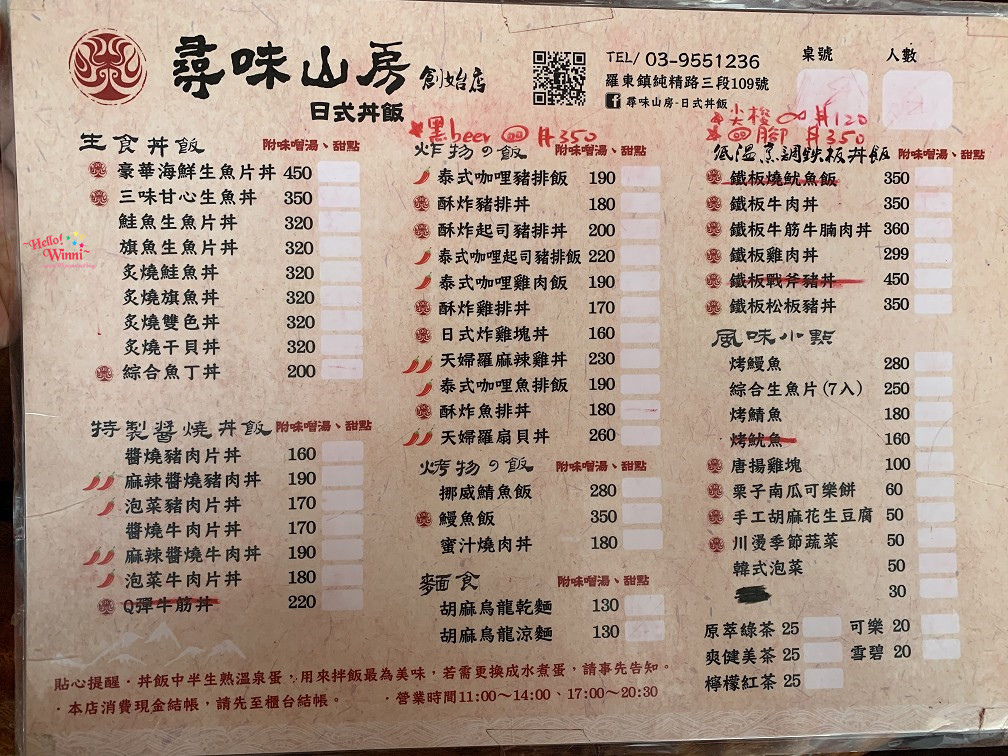 尋味山房 創始店
日式丼飯
TEL/ 03-9551236
羅東鎮純精路三段109號
尋味山房-日式丼飯
桌號 人數
Hello!
Winni
生食丼飯 附味噌湯、甜點
豪華海鮮生魚片丼 450
三味甘心生魚丼 350
鮭魚生魚片丼 320
旗魚生魚片丼 320
炙燒鮭魚丼 320
炙燒旗魚丼 320
炙燒雙色丼 320
炙燒干貝丼 320
綜合魚丁丼 200
特製醬燒丼飯 附味噌湯、甜點
醬燒豬肉片丼 160
麻辣醬燒豬肉丼 190
泡菜豬肉片丼 170
醬燒牛肉片丼 170
麻辣醬燒牛肉丼 190
泡菜牛肉片丼 180
Q彈牛筋丼 220
黑beer 350
炸物の飯 附味噌湯、甜點
泰式咖哩豬排飯 190
酥炸豬排丼 180
酥炸起司豬排丼 200
泰式咖哩起司豬排飯 220
泰式咖哩雞肉飯 190
酥炸雞排丼 170
日式炸雞塊丼 160
天婦羅麻辣雞丼 230
泰式咖哩魚排飯 190
酥炸魚排丼 180
天婦羅扇貝丼 260
烤物の飯 附味噌湯、甜點
挪威鯖魚飯 280
鰻魚飯 350
蜜汁燒肉丼 180
麵食 附味噌湯、甜點
胡麻烏龍乾麵 130
胡麻烏龍涼麵 130
尖梭 120
腳 350
低溫烹調鉄板丼飯 附味噌湯、甜點
鐵板燒魷魚飯 350
鐵板牛肉丼 350
鐵板牛筋牛腩肉丼 360
鐵板雞肉丼 299
鐵板戰斧豬丼 450
鐵板松板豬丼 350
風味小點
烤鰻魚 280
綜合生魚片(7入) 250
烤鯖魚 180
烤魷魚 160
唐揚雞塊 100
栗子南瓜可樂餅 60
手工胡麻花生豆腐 50
川燙季節蔬菜 50
韓式泡菜 50
30
原萃綠茶 25 可樂 20
爽健美茶 25 雪碧 20
檸檬紅茶 25
貼心提醒・丼飯中半生熟溫泉蛋，用來拌飯最為美味，若需更換成水煮蛋，請事先告知。
・本店消費現金結帳，請先至櫃台結帳。 ・營業時間11:00～14:00、17:00～20:30